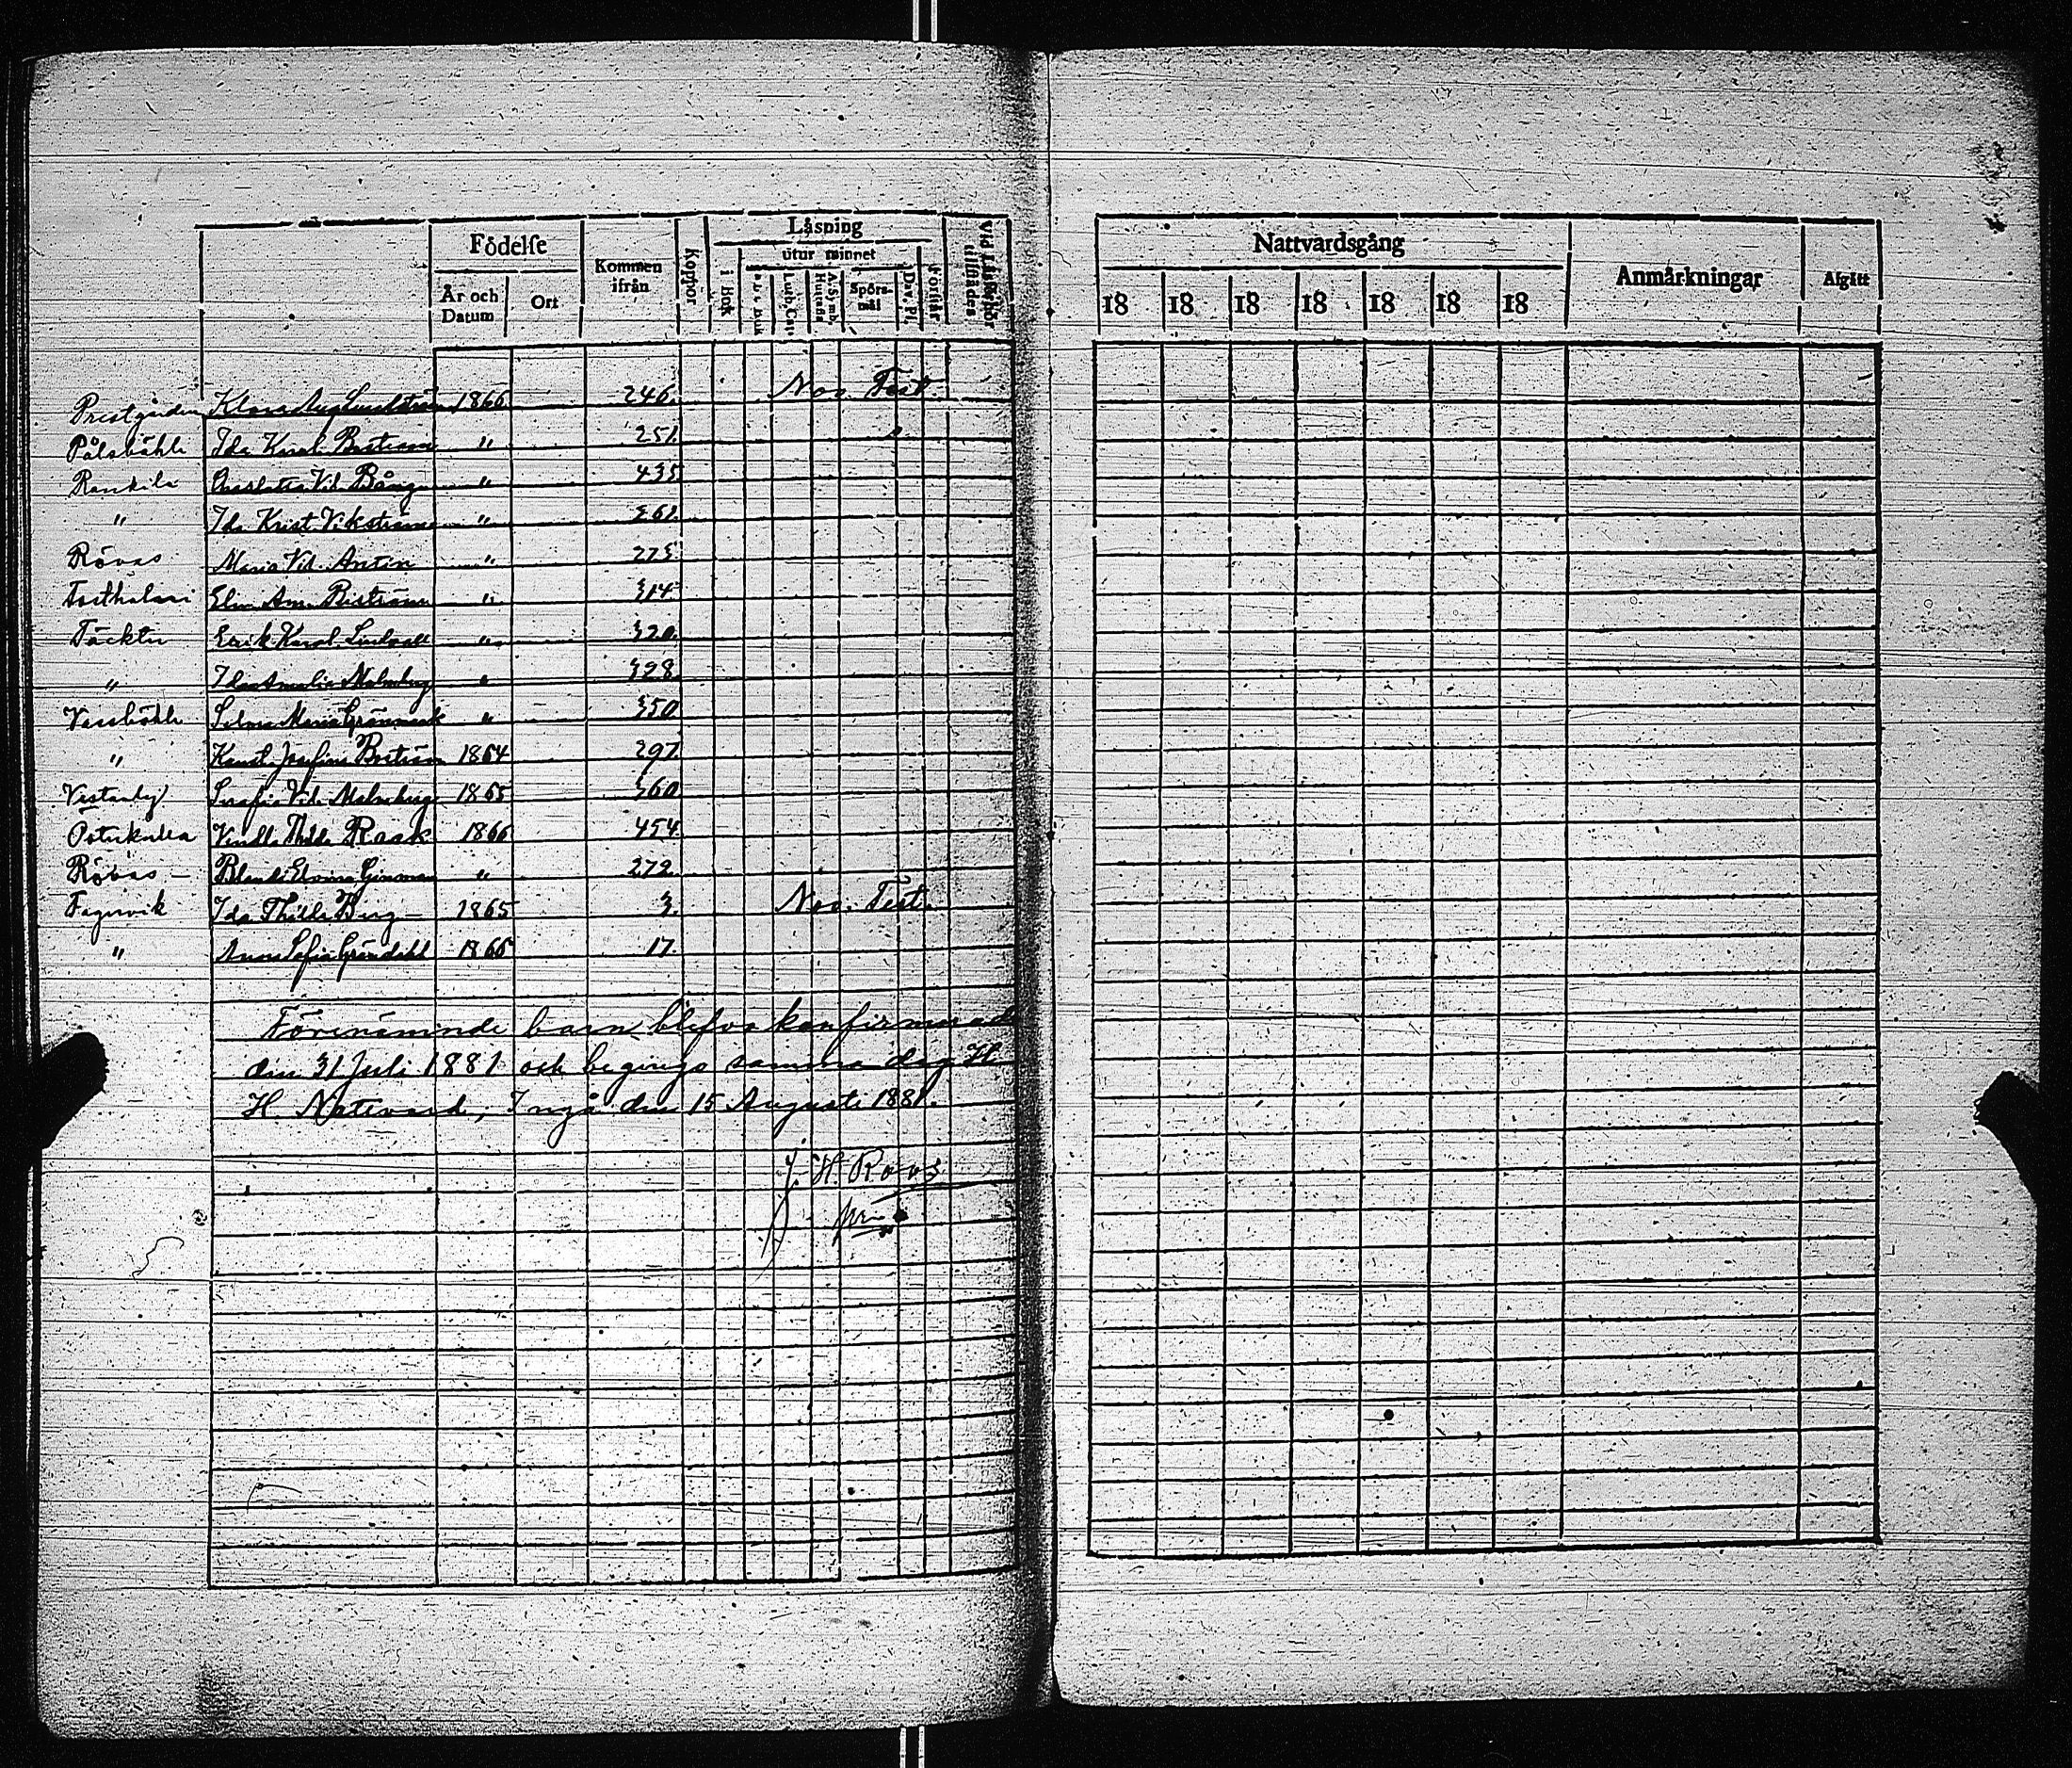 Födelse Kommen ifrån Koppor Läsning Vid Läsförhör tillstådes
utur minnet
År och Datum Ort i Bok a.b.c. Bok Luth. Cat. A. Symb. Hustafla Spörsmål Dav. Ps. Förstår
Prestgården Klara Aug Lundström 1866 246. Nov. Test.
Pålsböhle Ida Karol. Boström " 251.
Rankila Charlotta Vil. Bång " 435
" Ida Krist. Vikström " 261.
Rövas Maria Vil. Antin " 275
Elin Am. Boström " 314
Täckter Erik Karol. Lindvall " 320.
" Ida Amalia Malmberg " 328.
Vassböhle Selma Maria Grönmark " 350
" Konst. Josefina Boström 1864 297.
Vestanby Serafia Vil. Malmberg 1865 360
Österkulla Vendla Thilda Rask 1866 454
Rövas – Blanda Elvina Ginman " 272.
Fagervik Ida Thilda Berg – 1865 3. Nov. Test.
" Anna Sofia Gröndahl 1866 17.
Förenämnde barn blefvo konfirmerad
den 31 Juli 1881 och begingo samma dag H.
H. Nattvard, Ingå den 15 Augusti 1881.
J. H. Roos
Nattvardsgång Anmärkningar Afgått
18 18 18 18 18 18 18